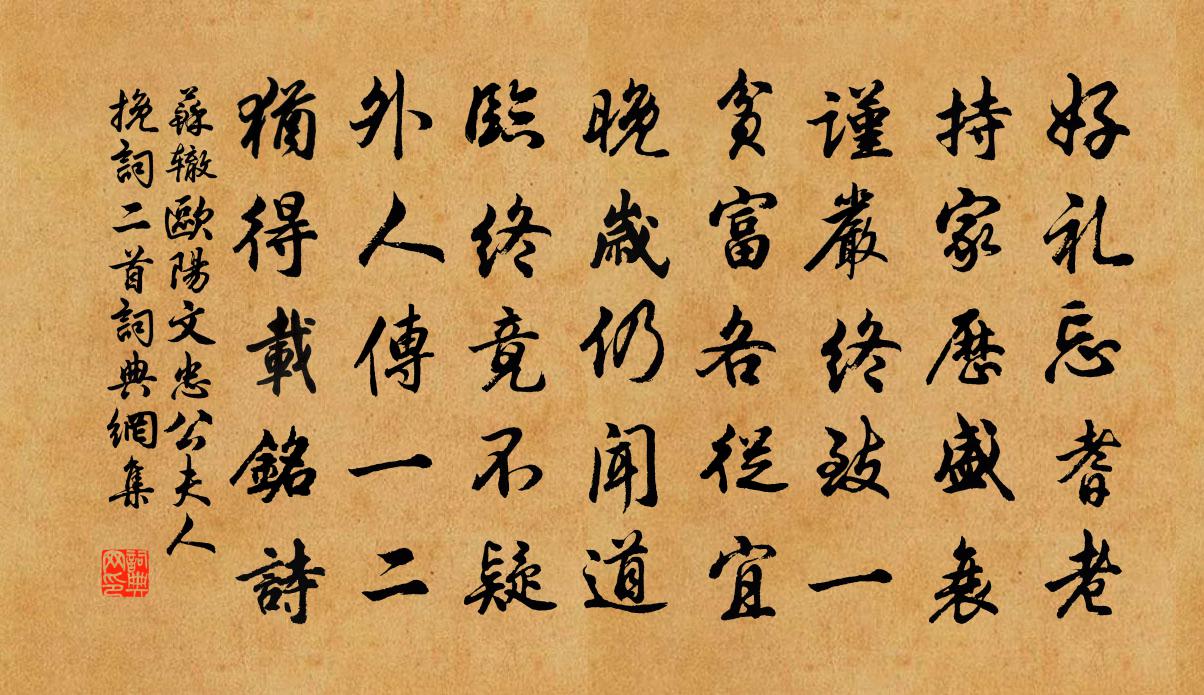 好礼忘耆老
持家歷盛衰
謹嚴終致一
貧富各從宜
晚歲仍聞道
臨終竟不疑
外人傳一二
猶得載銘詩
蘇轍歐陽文忠公夫人
挽詞二首詞典網集
詞典
网印